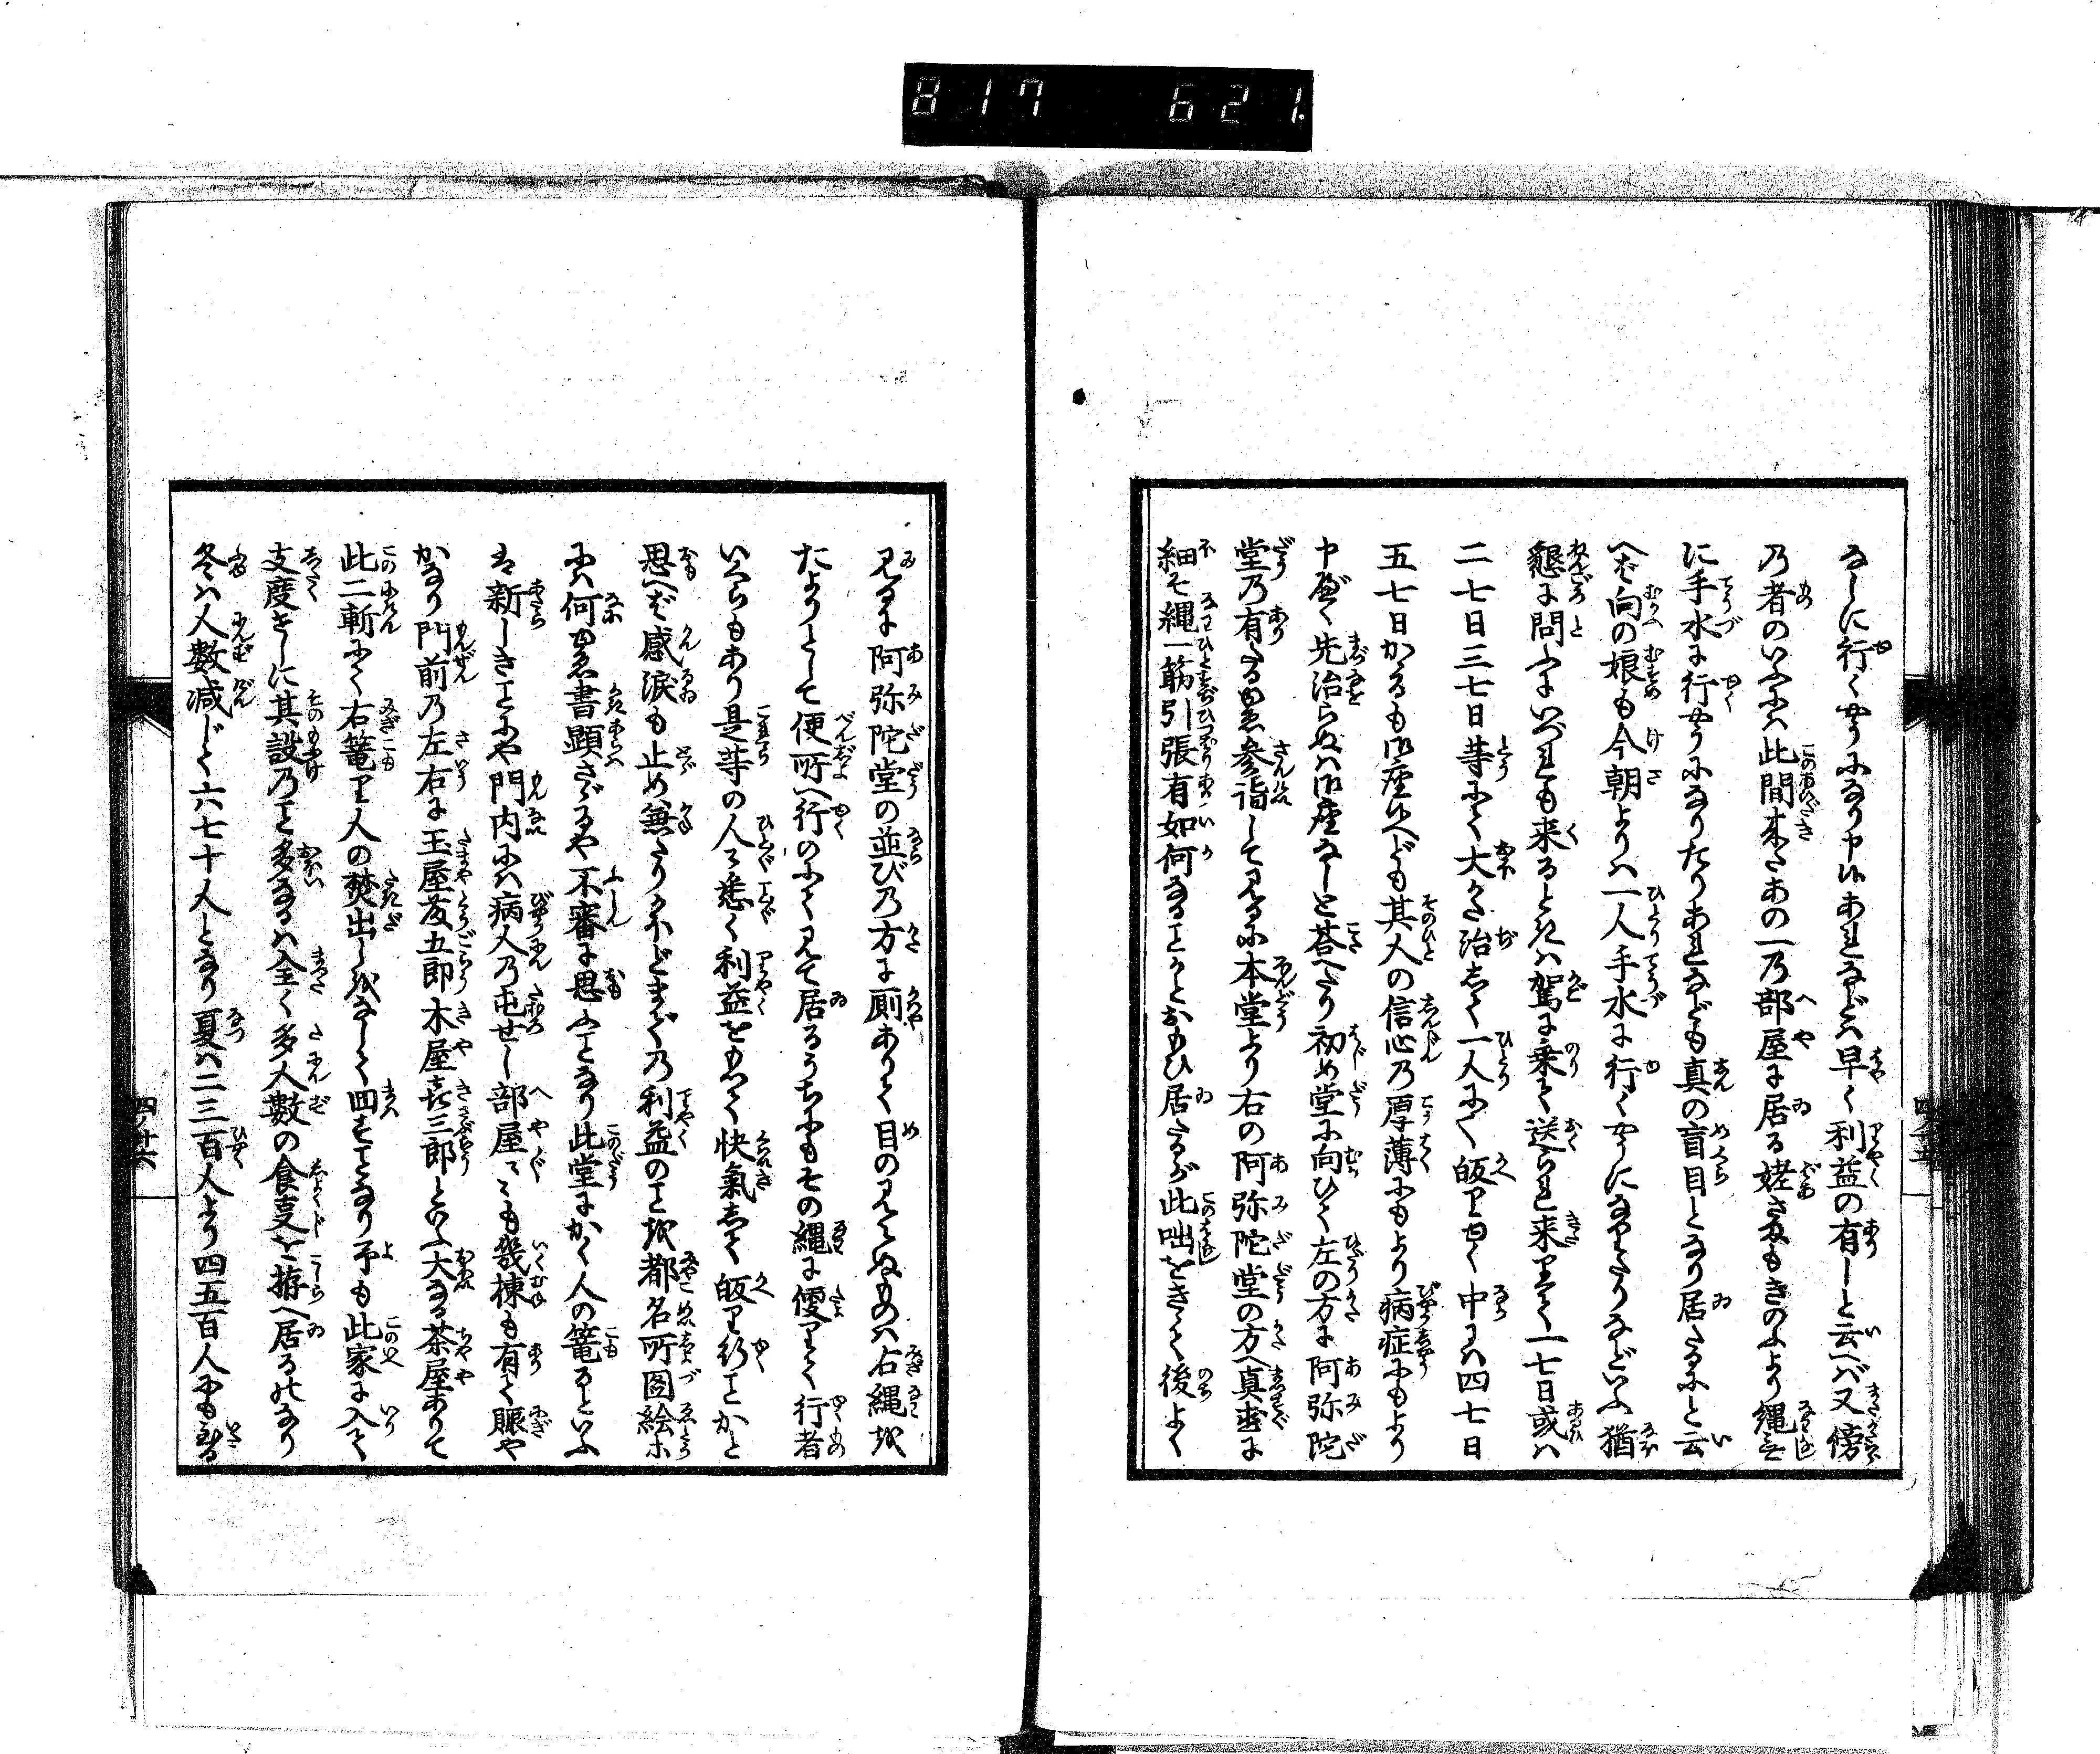 817 621
なしに行くやうになり申候あれなどハ早く利益の有しと云へバ又傍
乃者のいふにハ此間来たあの一乃部屋に居る姥さまもきのふより縄なし
に手水に行やうになりたりあれなども真の盲目となり居たるにと云
へば向の娘も今朝よりハ一人手水に行くやうになやたりなどいふ猶
懇に問ふにいづれも来るときハ駕に乗て送られ来りて一七日或ハ
二七日三七日等にて大かた治して一人にて皈り申て中にハ四七日
五七日かゝるも御座候へども其人の信心乃厚薄にもより病症にもより
申候て先治らぬハ御座なしと荅へたり初め堂に向ひて左の方に阿弥陀
堂乃有たるゆゑ参詣して見るに本堂より右の阿弥陀堂の方へ真直に
細き縄一筋引張有如何なることかとおもひ居たるが此咄をきゝて後よく
見るに阿弥陀堂の並び乃方に厠ありて目の見えぬものハ右縄を
たよりとして便所へ行のにて見て居るうちにもその縄に便りて行者
いくらもあり是等の人々悉く利益をもらひて快氣して皈り行ことかと
思へば感涙も止め無たりかほどまで乃利益のこと故都名所圖絵ホ
にハ何ゆゑ書顕さゞるや不審に思ふことなり此堂にかく人の篭るといふ
も新しきことにや門内にハ病人乃屯せし部屋々々も幾棟も有て賑や
かなり門前乃左右に玉屋友五郎木屋喜三郎といふ大なる茶屋ありて
此二軒にて右篭り人の焚出し抔なして回すことなり予も此家に入て
支度せしに其設乃こと多なるハ全く多人數の食事を拵へ居る故なり
冬ハ人數減じて六七十人となり夏ハ二三百人より四五百人にも至る
四ノ廿六